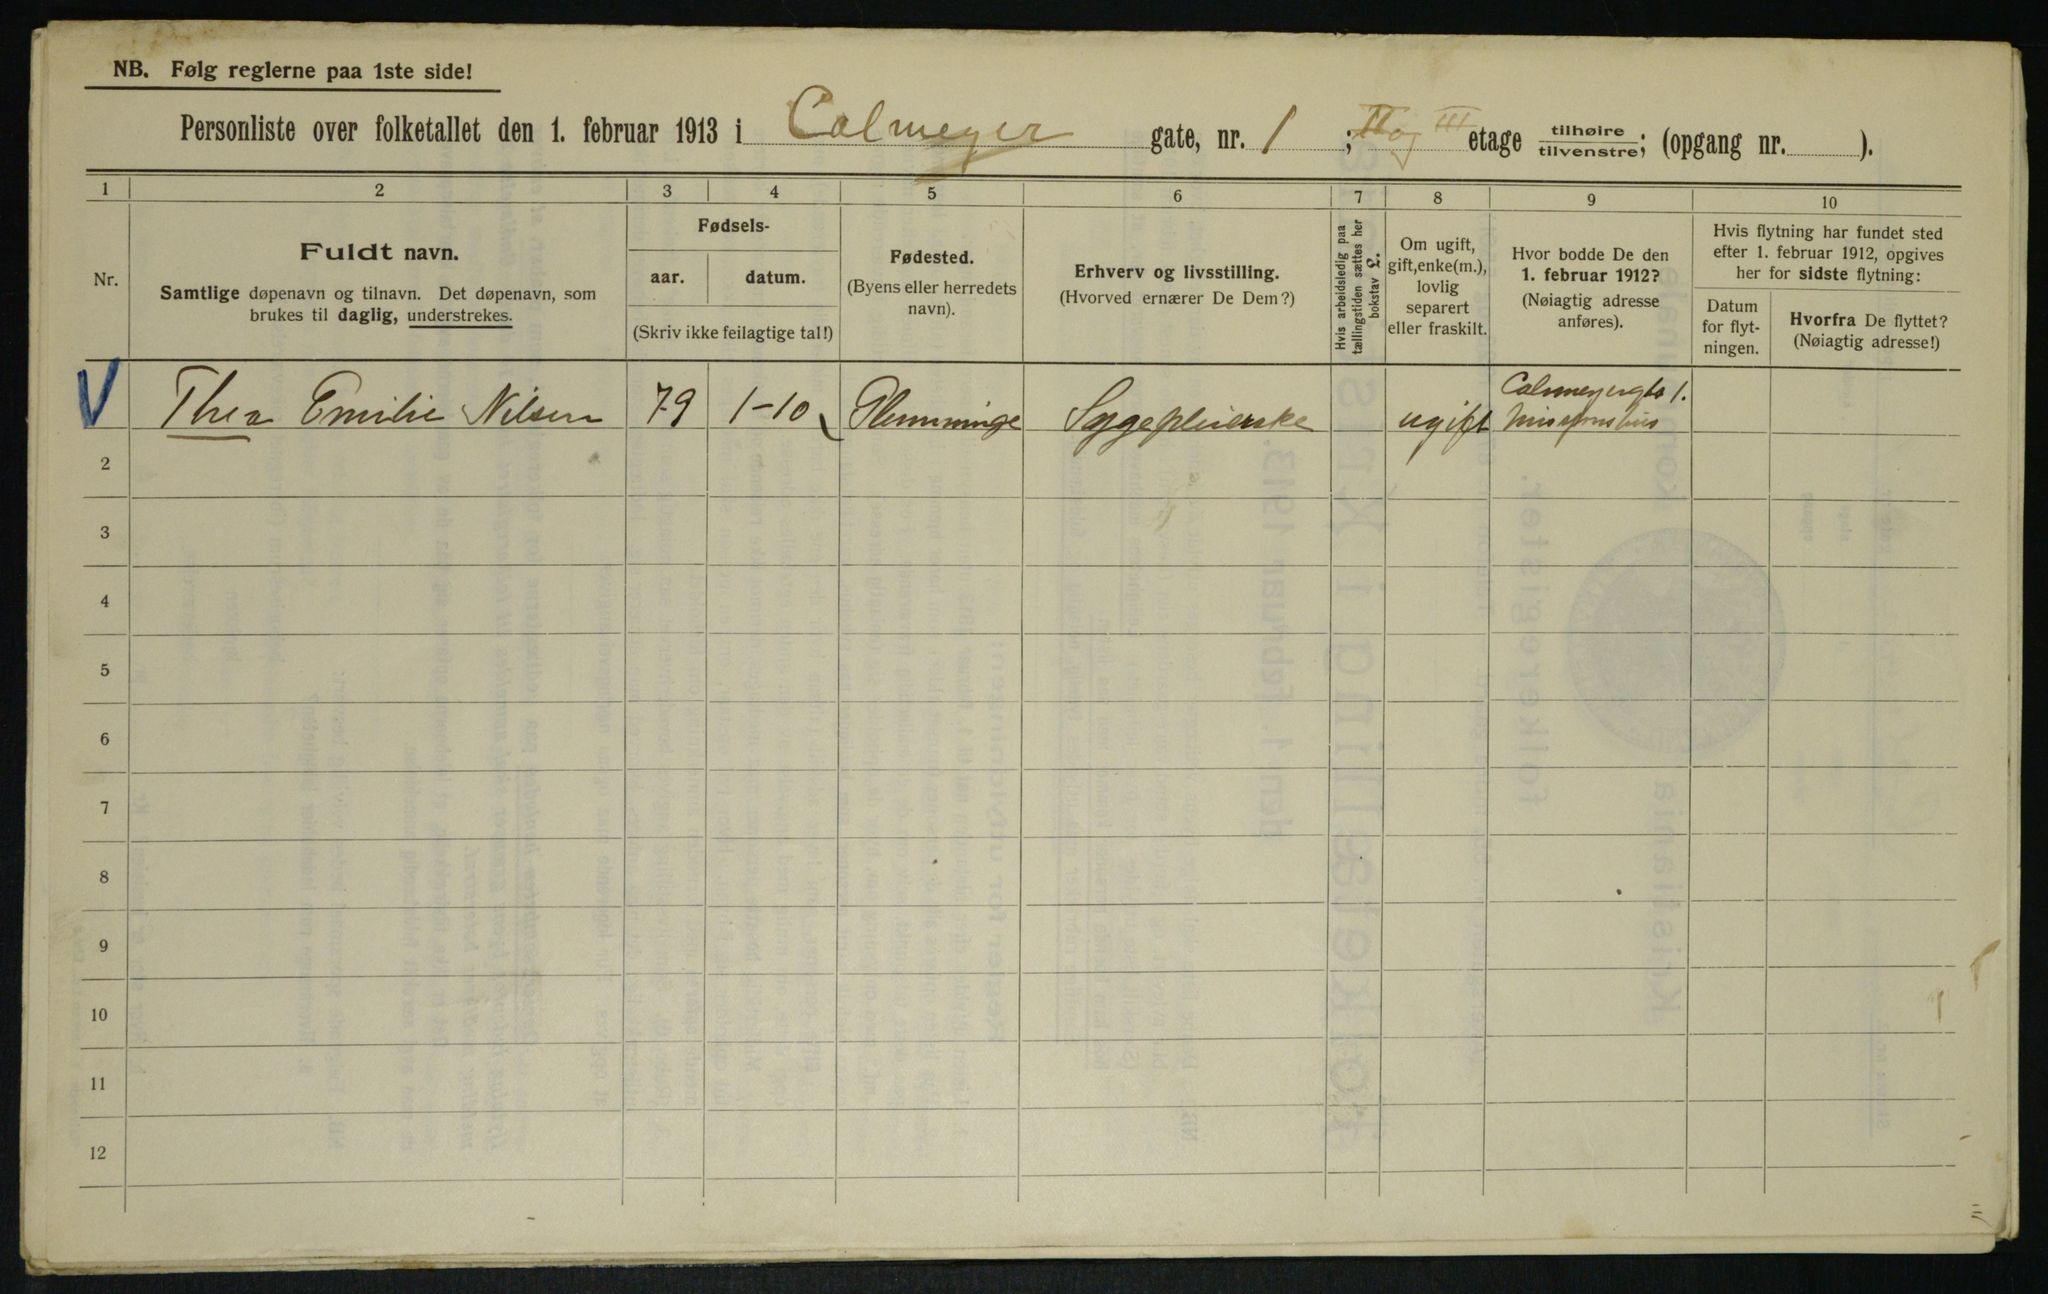 NB. Følg reglerne paa 1ste side!
Personliste over folketallet den 1. februar 1913 i Calmeyer gate, nr. 1 ; II og III etage tilhøire/tilvenstre; (opgang nr. ).
1 2 3 4 5 6 7 8 9 10
Nr.
Fuldt navn.
Samtlige døpenavn og tilnavn. Det døpenavn, som
brukes til daglig, understrekes.
Fødsels-
aar. datum.
(Skriv ikke feilagtige tal!)
Fødested.
(Byens eller herredets
navn).
Erhverv og livsstilling.
(Hvorved ernærer De Dem?)
Hvis arbeidsledig paa
tællingstiden sættes her
bokstav L.
Om ugift,
gift, enke(m.),
lovlig
separert
eller fraskilt.
Hvor bodde De den
1. februar 1912?
(Nøiagtig adresse
anføres).
Hvis flytning har fundet sted
efter 1. februar 1912, opgives
her for sidste flytning:
Datum
for flyt-
ningen.
Hvorfra De flyttet?
(Nøiagtig adresse!)
Thea Emilie Nilsen 79 1-10 Flemminge Sygepleierske ugift Calmeyergta 1.
Missionshus
2
3
4
5
6
7
8
9
10
11
12